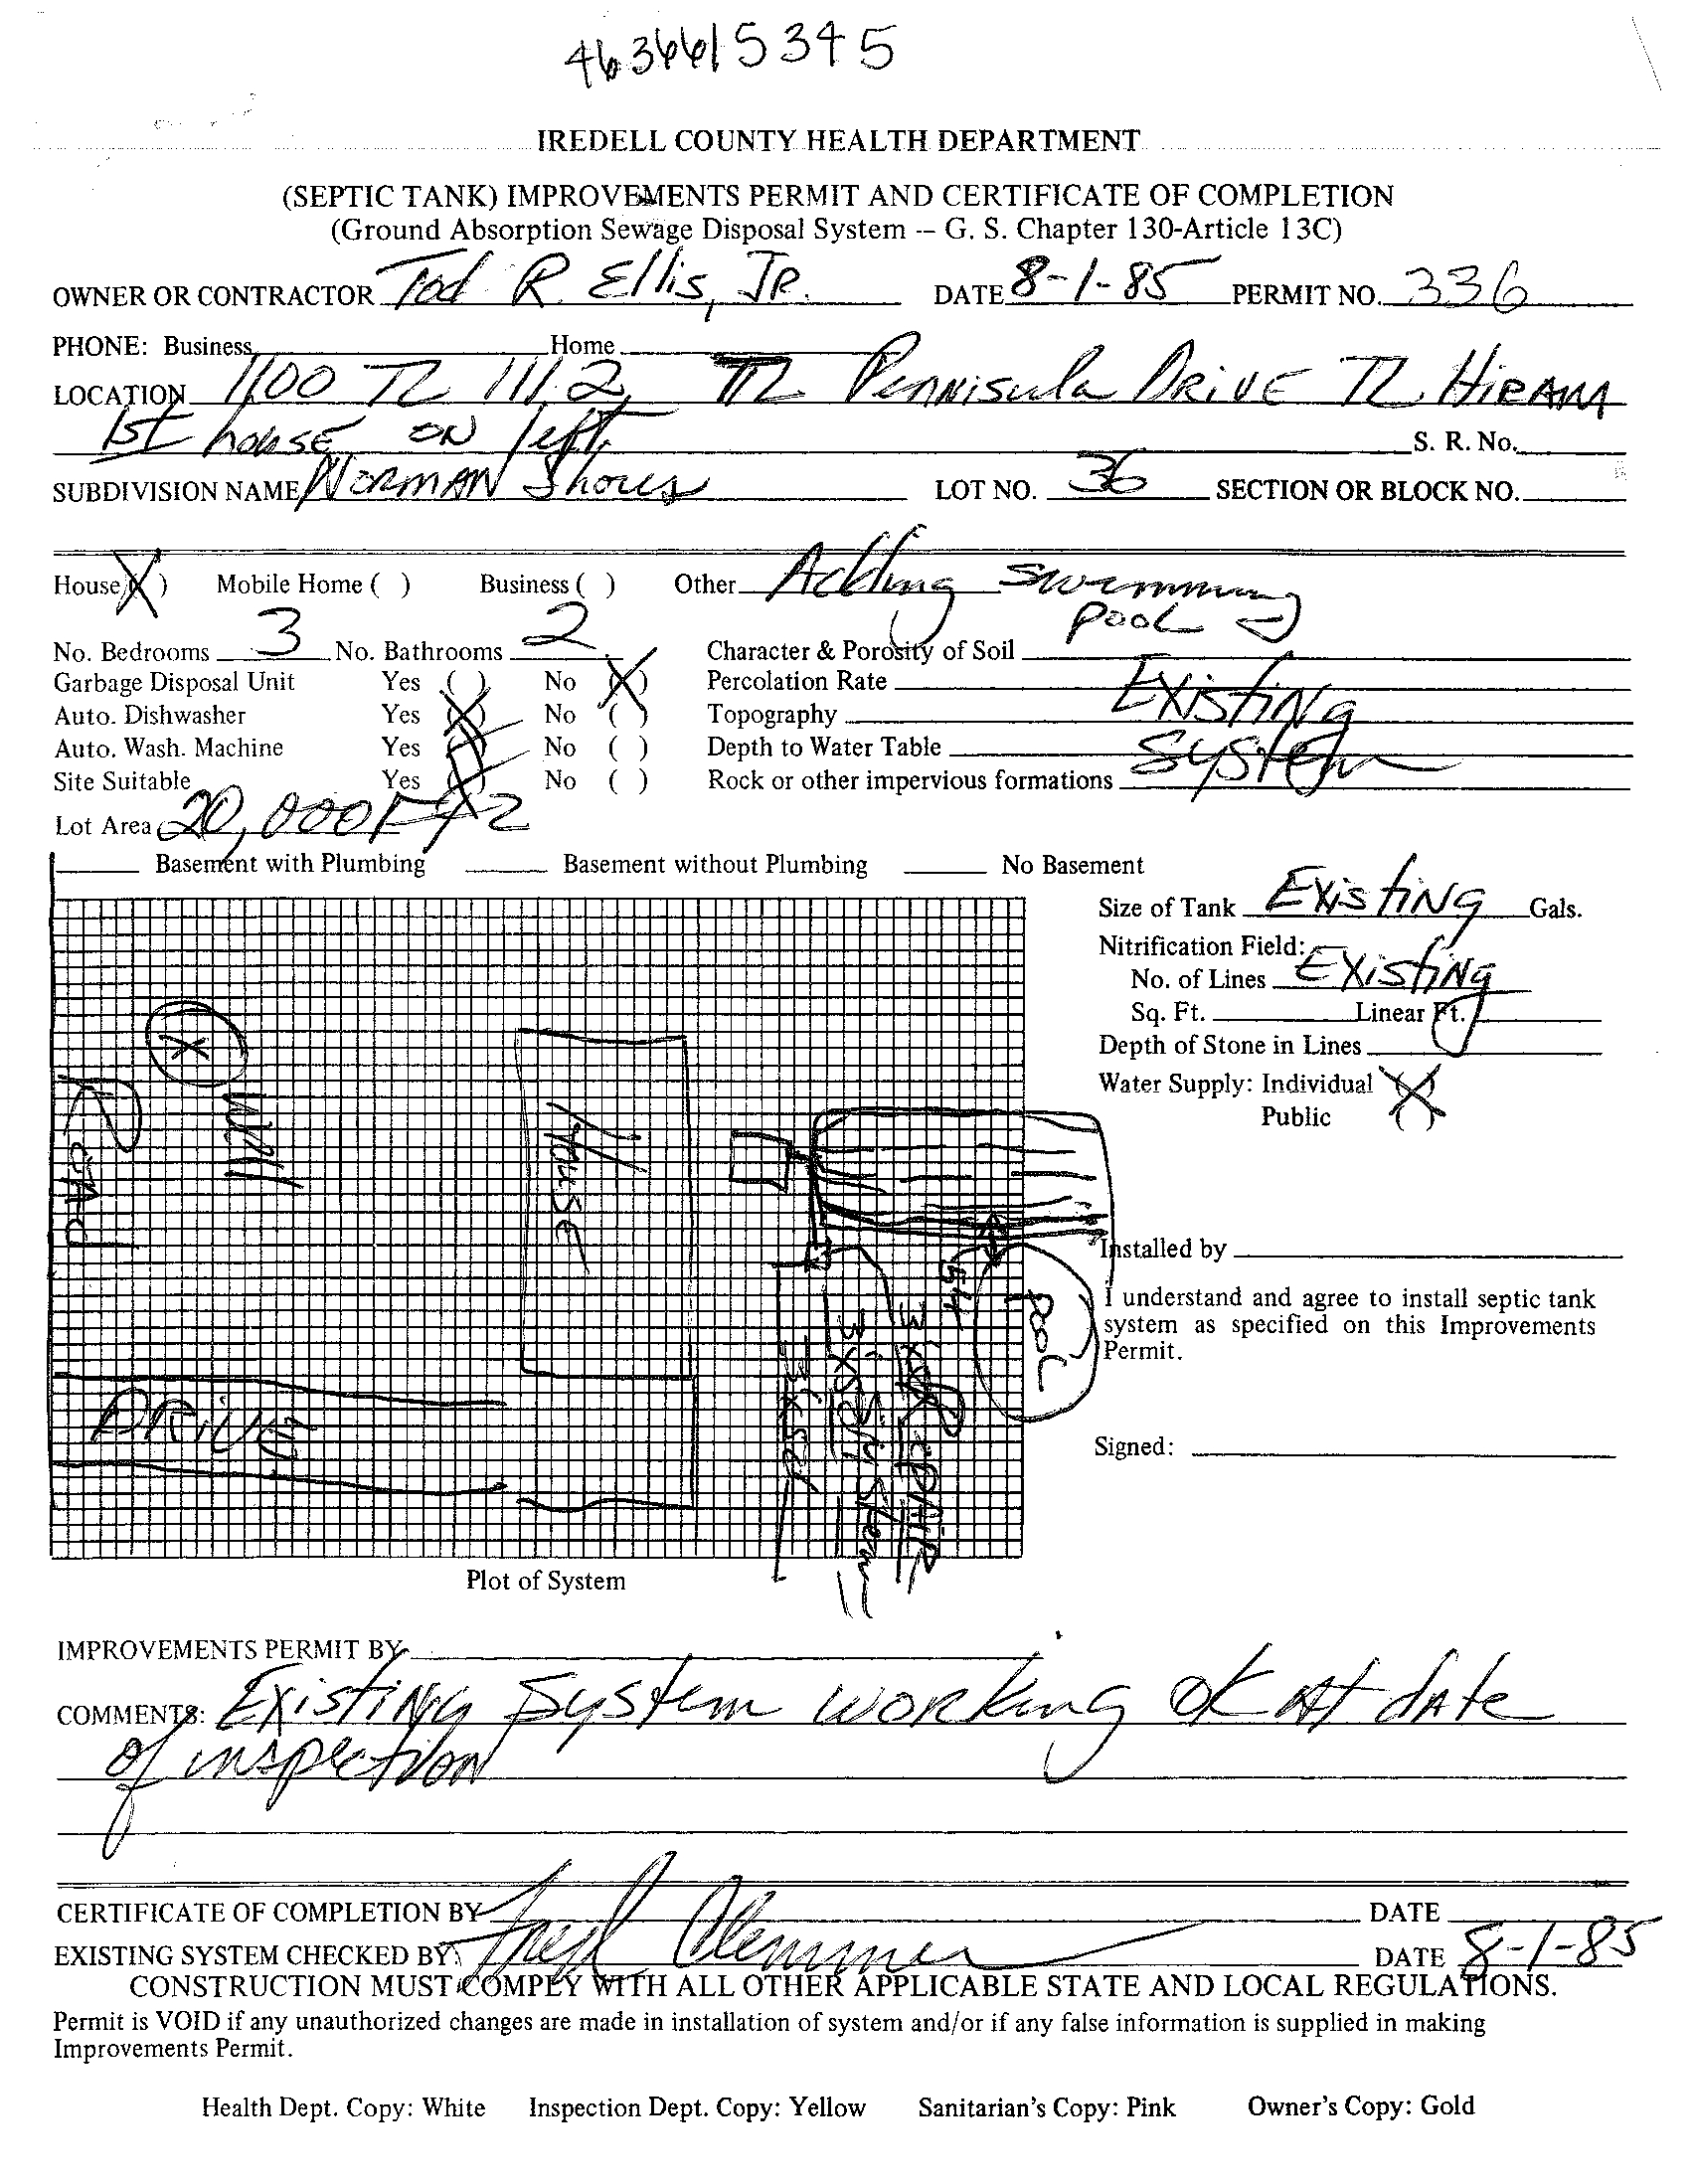 4636615345
IREDELL COUNTY HEALTH DEPARTMENT
(SEPTIC TANK) IMPROVEMENTS PERMIT AND CERTIFICATE OF COMPLETION
(Ground Absorption Sewage Disposal System -- G. S. Chapter 130-Article 13C)
OWNER OR CONTRACTOR Tod R. Ellis, JR. DATE 8-1-85 PERMIT NO. 336
PHONE: Business Home
LOCATION 1100 TL 1112, TL Pennisula DRIVE TL HIRAM
1st house ON left. S. R. No.
SUBDIVISION NAME NORMAN Shores LOT NO. 36 SECTION OR BLOCK NO.
House (X) Mobile Home ( ) Business ( ) Other Adding swimming
pool
No. Bedrooms 3 No. Bathrooms 2 Character & Porosity of Soil
Garbage Disposal Unit Yes ( ) No (X) Percolation Rate Existing
Auto. Dishwasher Yes (X) No ( ) Topography
Auto. Wash. Machine Yes (X) No ( ) Depth to Water Table System
Site Suitable Yes (X) No ( ) Rock or other impervious formations
Lot Area 20,000 Ft2
Basement with Plumbing Basement without Plumbing No Basement
Size of Tank Existing Gals.
Nitrification Field:
No. of Lines Existing
Sq. Ft. Linear Ft.
Depth of Stone in Lines
Water Supply: Individual (X)
Public ( )
X
Well
Road
House
Drive
Pool
5ft
REPAIR
System
Installed by
I understand and agree to install septic tank
system as specified on this Improvements
Permit.
Signed:
Plot of System
IMPROVEMENTS PERMIT BY
COMMENTS: Existing System working ok at date
of inspection
CERTIFICATE OF COMPLETION BY DATE
EXISTING SYSTEM CHECKED BY Clemmer DATE 8-1-85
CONSTRUCTION MUST COMPLY WITH ALL OTHER APPLICABLE STATE AND LOCAL REGULATIONS.
Permit is VOID if any unauthorized changes are made in installation of system and/or if any false information is supplied in making
Improvements Permit.
Health Dept. Copy: White Inspection Dept. Copy: Yellow Sanitarian's Copy: Pink Owner's Copy: Gold